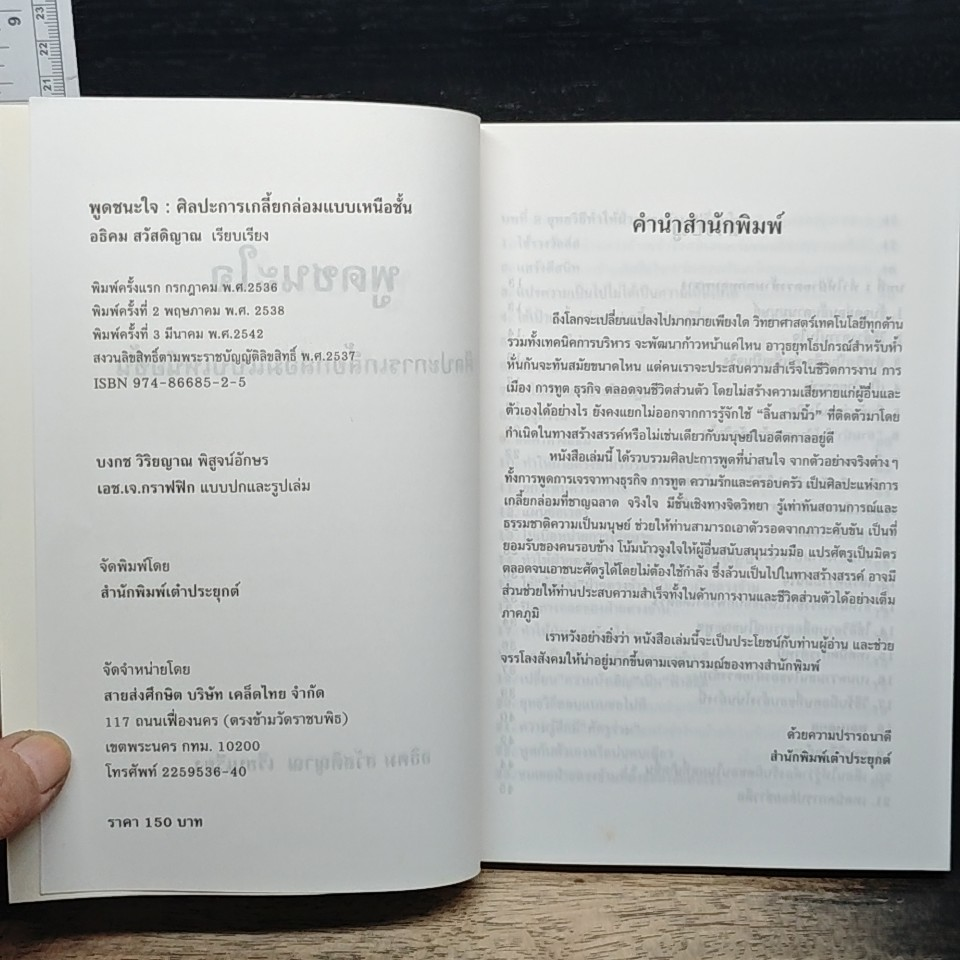 9
23
22
21
พูดชนะใจ : ศิลปะการเกลี้ยกล่อมแบบเหนือชั้น
อธิคม สวัสดิญาณ เรียบเรียง
พิมพ์ครั้งแรก กรกฎาคม พ.ศ.2536
พิมพ์ครั้งที่ 2 พฤษภาคม พ.ศ. 2538
พิมพ์ครั้งที่ 3 มีนาคม พ.ศ.2542
สงวนลิขสิทธิ์ตามพระราชบัญญัติลิขสิทธิ์ พ.ศ.2537
ISBN 974-86685-2-5
บงกช วิริยญาณ พิสูจน์อักษร
เอช.เจ.กราฟฟิก แบบปกและรูปเล่ม
จัดพิมพ์โดย
สำนักพิมพ์เต๋าประยุกต์
จัดจำหน่ายโดย
สายส่งศึกษิต บริษัท เคล็ดไทย จำกัด
117 ถนนเฟื่องนคร (ตรงข้ามวัดราชบพิธ)
เขตพระนคร กทม. 10200
โทรศัพท์ 2259536-40
ราคา 150 บาท
คำนำสำนักพิมพ์
ถึงโลกจะเปลี่ยนแปลงไปมากมายเพียงใด วิทยาศาสตร์เทคโนโลยีทุกด้าน
รวมทั้งเทคนิคการบริหาร จะพัฒนาก้าวหน้าแค่ไหน อาวุธยุทโธปกรณ์สำหรับห้ำ
หั่นกันจะทันสมัยขนาดไหน แต่คนเราจะประสบความสำเร็จในชีวิตการงาน การ
เมือง การทูต ธุรกิจ ตลอดจนชีวิตส่วนตัว โดยไม่สร้างความเสียหายแก่ผู้อื่นและ
ตัวเองได้อย่างไร ยังคงแยกไม่ออกจากการรู้จักใช้ “ลิ้นสามนิ้ว” ที่ติดตัวมาโดย
กำเนิดในทางสร้างสรรค์หรือไม่เช่นเดียวกับมนุษย์ในอดีตกาลอยู่ดี
หนังสือเล่มนี้ ได้รวบรวมศิลปะการพูดที่น่าสนใจ จากตัวอย่างจริงต่างๆ
ทั้งการพูดการเจรจาทางธุรกิจ การทูต ความรักและครอบครัว เป็นศิลปะแห่งการ
เกลี้ยกล่อมที่ชาญฉลาด จริงใจ มีชั้นเชิงทางจิตวิทยา รู้เท่าทันสถานการณ์และ
ธรรมชาติความเป็นมนุษย์ ช่วยให้ท่านสามารถเอาตัวรอดจากภาวะคับขัน เป็นที่
ยอมรับของคนรอบข้าง โน้มน้าวจูงใจให้ผู้อื่นสนับสนุนร่วมมือ แปรศัตรูเป็นมิตร
ตลอดจนเอาชนะศัตรูได้โดยไม่ต้องใช้กำลัง ซึ่งล้วนเป็นไปในทางสร้างสรรค์ อาจมี
ส่วนช่วยให้ท่านประสบความสำเร็จทั้งในด้านการงานและชีวิตส่วนตัวได้อย่างเต็ม
ภาคภูมิ
เราหวังอย่างยิ่งว่า หนังสือเล่มนี้จะเป็นประโยชน์กับท่านผู้อ่าน และช่วย
จรรโลงสังคมให้น่าอยู่มากขึ้นตามเจตนารมณ์ของทางสำนักพิมพ์
ด้วยความปรารถนาดี
สำนักพิมพ์เต๋าประยุกต์